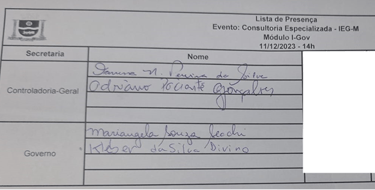 Lista de Presença
Evento: Consultoria Especializada - IEG-M
Módulo I-Gov
11/12/2023 - 14h
Secretaria
Nome
Controladoria-Geral
Pereira da Silva
Adriano Gonçalves
Governo
Mariangela Souza
Kleser da Silva Divino